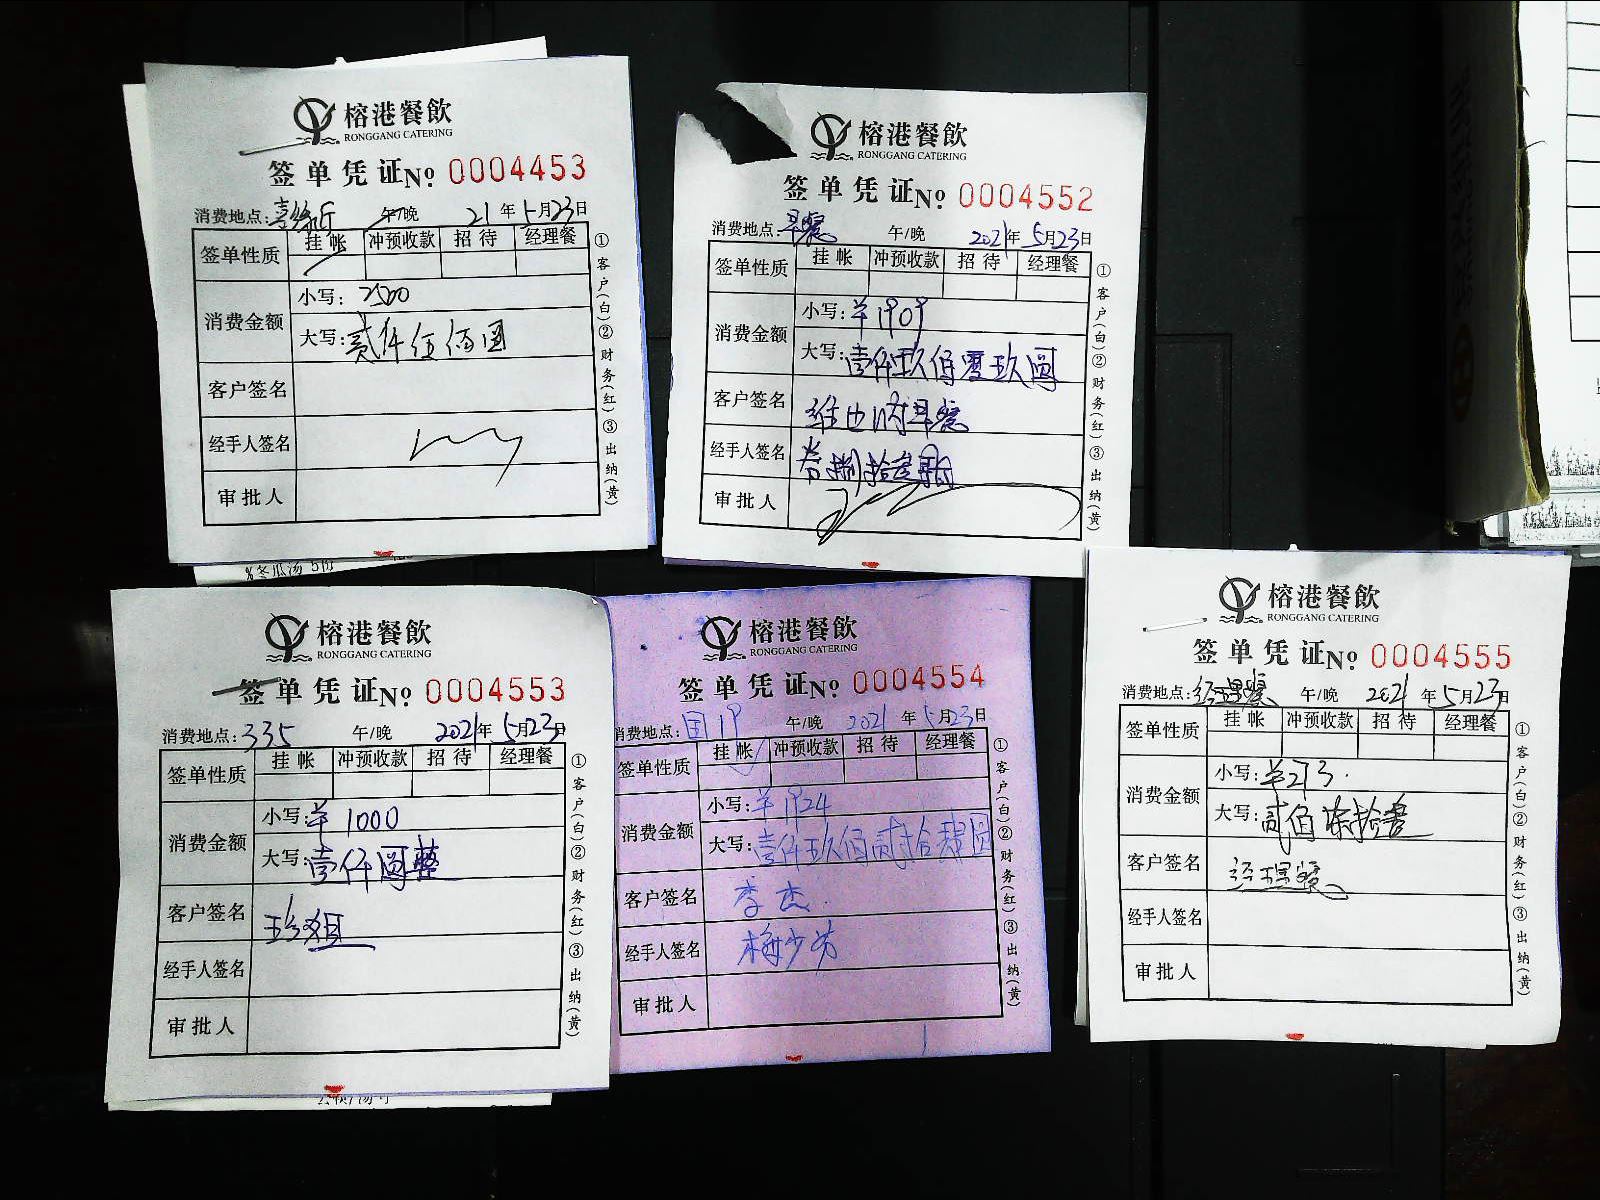 榕港餐飲
RONGGANG CATERING
签单凭证No 0004453
消费地点: 午/晚 21年5月23日
签单性质 挂帐 冲预收款 招待 经理餐
消费金额 小写: 2500
大写: 贰仟伍佰圆
客户签名
经手人签名
审批人
①客户(白)②财务(红)③出纳(黄)
冬瓜汤 5份
榕港餐飲
RONGGANG CATERING
签单凭证No 0004552
消费地点: 早餐 午/晚 2021年5月23日
签单性质 挂帐 冲预收款 招待 经理餐
消费金额 小写: ¥1909
大写: 壹仟玖佰零玖圆
客户签名 维也纳早餐
经手人签名
审批人
①客户(白)②财务(红)③出纳(黄)
榕港餐飲
RONGGANG CATERING
签单凭证No 0004553
消费地点: 335 午/晚 2021年5月23日
签单性质 挂帐 冲预收款 招待 经理餐
消费金额 小写: ¥1000
大写: 壹仟圆整
客户签名 玲姐
经手人签名
审批人
①客户(白)②财务(红)③出纳(黄)
榕港餐飲
RONGGANG CATERING
签单凭证No 0004554
消费地点: 国19 午/晚 2021年5月23日
签单性质 挂帐 冲预收款 招待 经理餐
消费金额 小写: ¥1924
大写: 壹仟玖佰贰拾肆圆
客户签名 李杰
经手人签名 梅少芳
审批人
①客户(白)②财务(红)③出纳(黄)
榕港餐飲
RONGGANG CATERING
签单凭证No 0004555
消费地点: 经理餐 午/晚 2021年5月23日
签单性质 挂帐 冲预收款 招待 经理餐
消费金额 小写: ¥273.
大写: 贰佰柒拾叁
客户签名 经理餐
经手人签名
审批人
①客户(白)②财务(红)③出纳(黄)